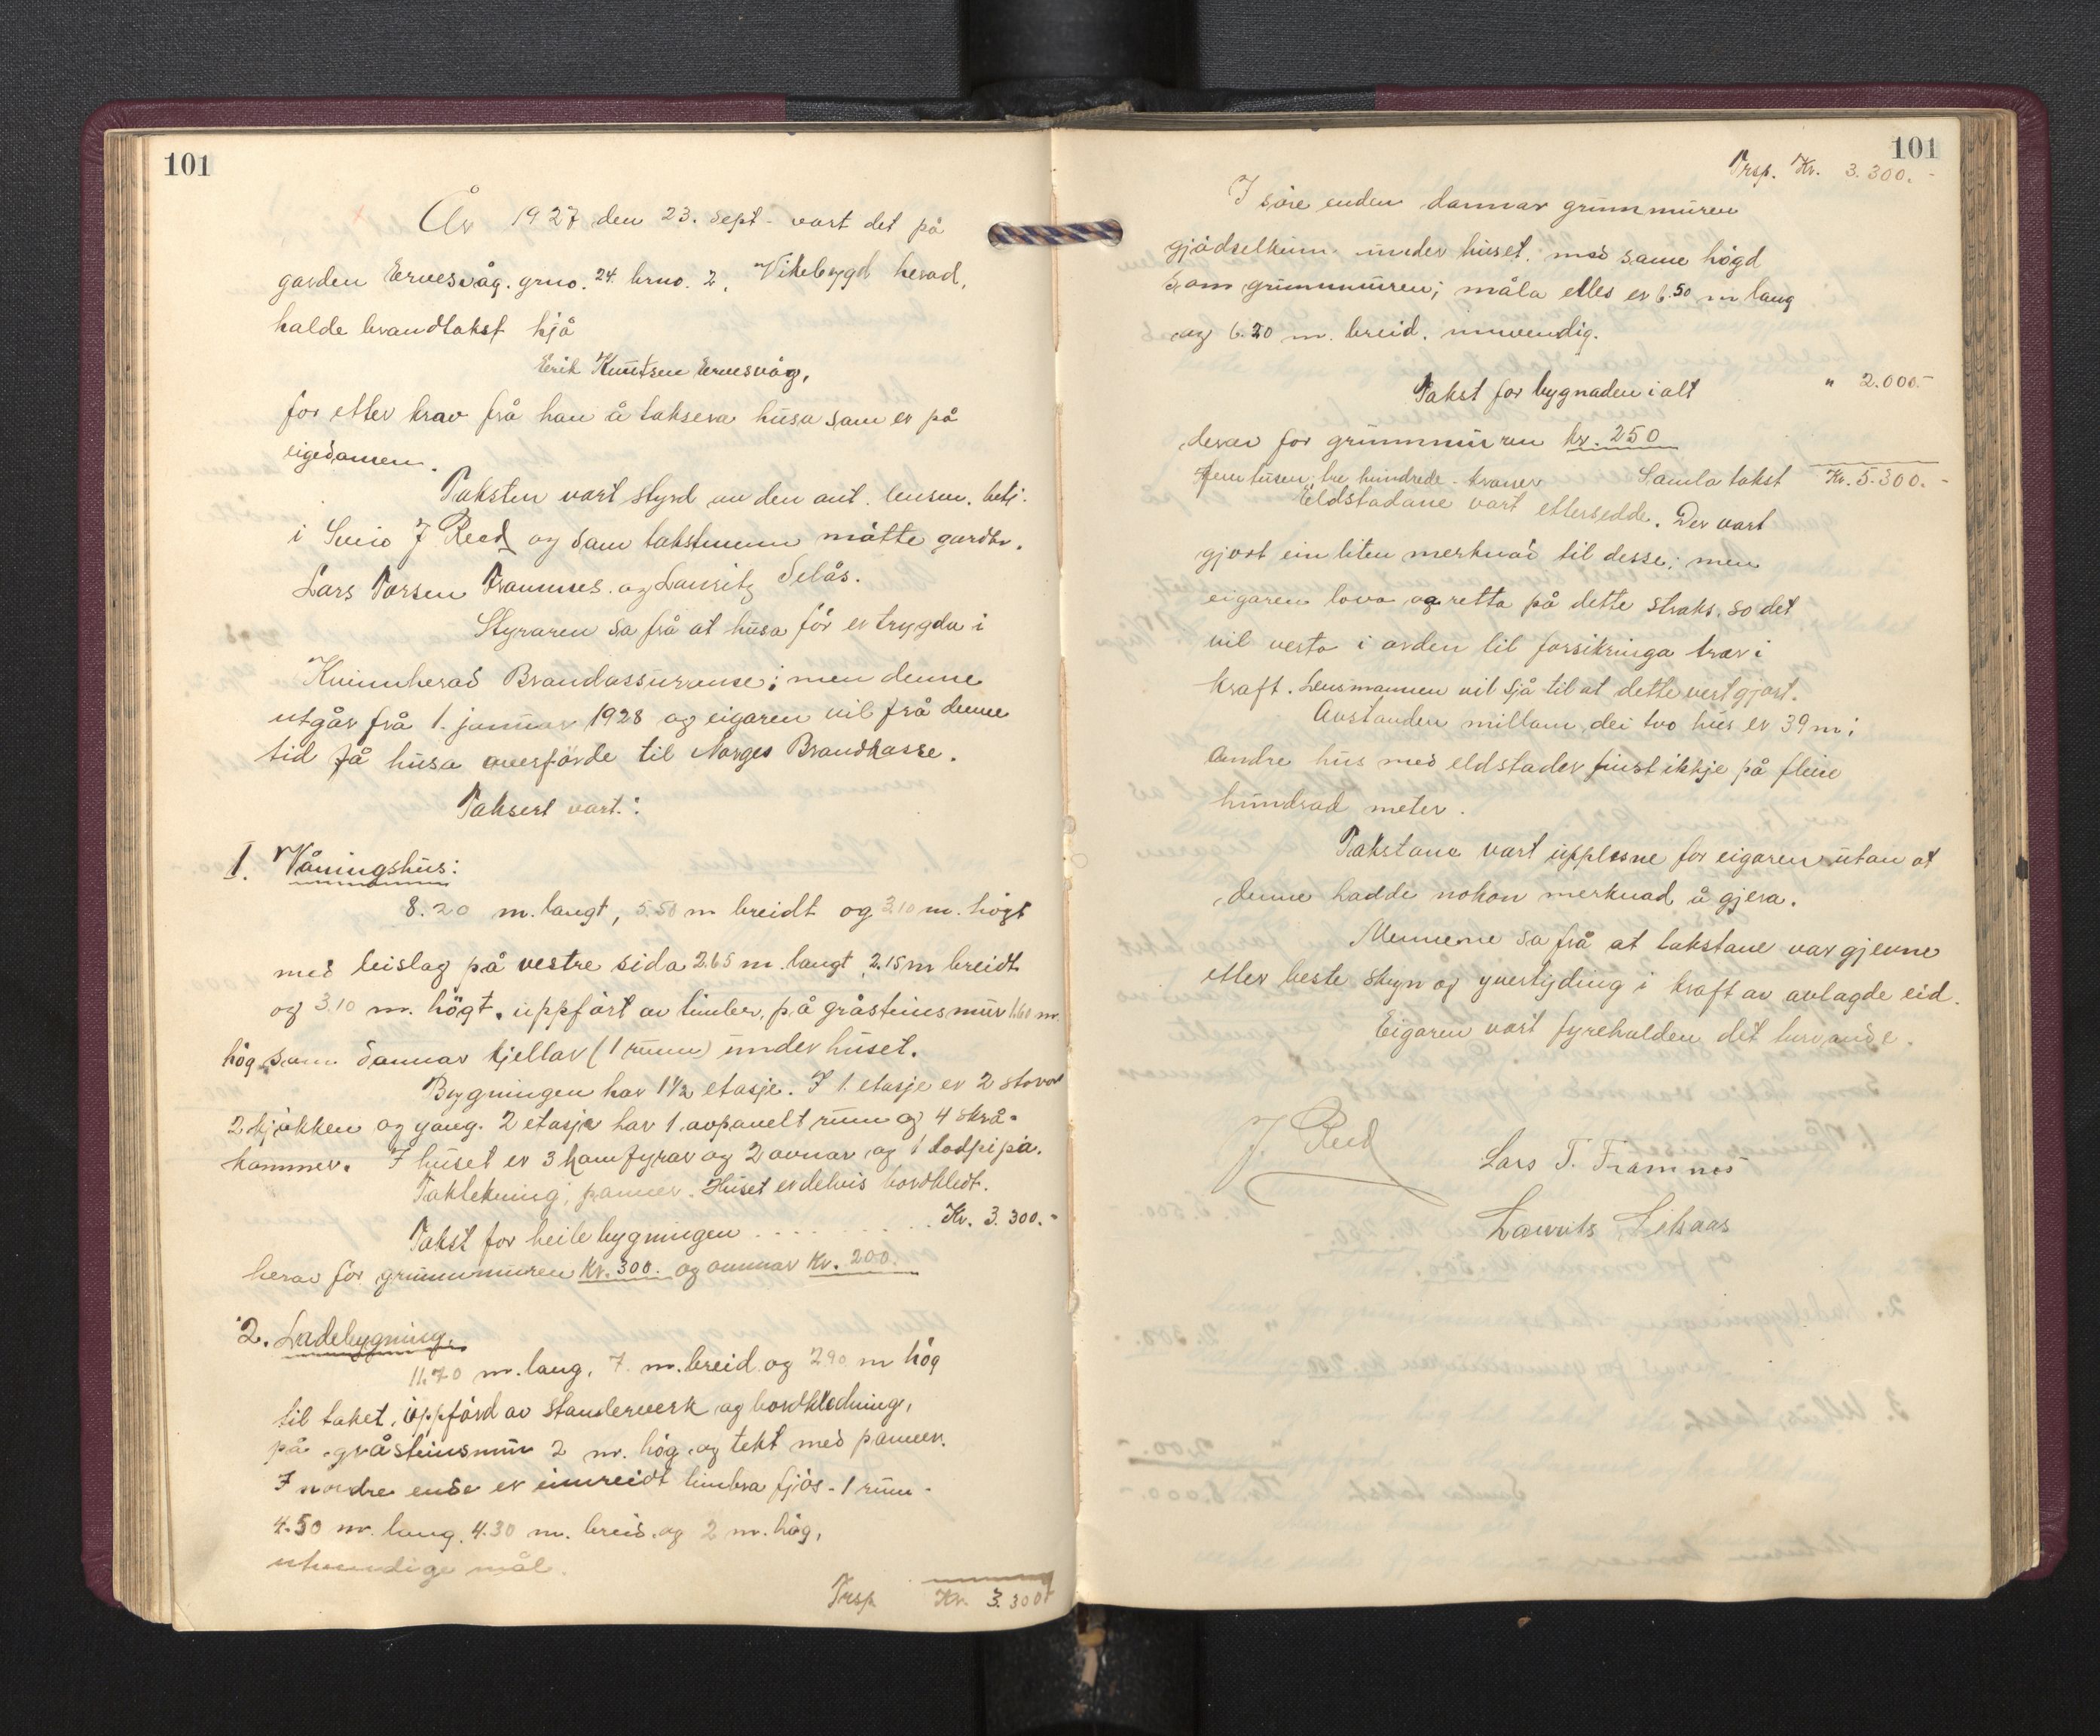 101
År 1927 den 23. sept - vart det på
garden Ervesvåg. grno. 24. brno. 2. Vikebygd herad,
halde brandtakst hjå
Erik Knutsen Ervesvåg,
for etter krav frå han å taksera husa som er på
eigedomen.
Taksten vart styrd av den aut. lensm. betj.
i Sveio J Reed og som takstmenn møtte gardbr.
Lars Torsen Framnes. og Lauritz Selås.
Styraren sa frå at husa før er trygda i
Kvinnherad Brandassuranse; men denne
utgår frå 1. januar 1928 og eigaren vil frå denne
tid få husa overførde til Norges Brandkasse.
Taksert vart:
1. Våningshus:
8.20 m. langt, 5.50 m breidt og 3.10 m. høgt
med beislag på vestre sida 2.65 m. langt, 2.15 m breidt
og 3.10 m. høgt, uppført av timber, på gråsteinsmur 1.60 m.
høg som dannar kjellar (1 rum) under huset.
Bygningen har 1½ etasje. I 1. etasje er 2 stovor
2 kjøkken og gang. 2 etasje har 1 avpanelt rum og 4 skrå-
kammer. I huset er 3 komfyrar og 2 ovnar og 1 lodpipa.
Taktekning; panner. Huset er delvis bordkledt.
Takst for heile bygningen . . . . . . . . Kr. 3.300.-
herav for grunnmuren Kr. 300. og omnar Kr. 200.
2. Ladebygning.
11.70 m. lang, 7. m. breid og 2.90 m høg
til taket, uppførd av standerverk og bordkledning,
på gråsteinsmur 2 m. høg og tekt med panner.
I nordre ende er innreidt timbra fjøs - 1 rum -
4.50 m. lang, 4.30 m. breid og 2 m. høg,
utvendige mål.
Trsp Kr. 3.300
101
Trsp. Kr. 3.300.-
I søre enden dannar grunnmuren
gjødselkum under huset, med same høgd
som grunnmuren; måla elles er 6.50 m lang
og 6.20 m. breid, innvendig.
Takst for bygnaden i alt " 2.000-
derav for grunnmuren kr. 250
Femtusen, tre hundrede - kroner Samla takst Kr. 5.300.-
Eldstadane vart ettersedde. Der vart
gjort ein liten merknad til desse; men
eigaren lova og retta på dette straks, so det
vil verta i orden til forsikringa trær i
kraft. Lensmannen vil sjå til at dette vert gjort.
Avstanden millom dei tvo hus er 39 m;
Andre hus med eldstader finst ikkje på fleire
hundrad meter.
Takstane vart upplesne for eigaren utan at
denne hadde nokon merknad å gjera.
Mennene sa frå at takstane var gjevne
etter beste skyn og yvertyding i kraft av avlagde eid.
Eigaren vart fyrehalden det turvande.
J. Reed
Lars T. Framnes